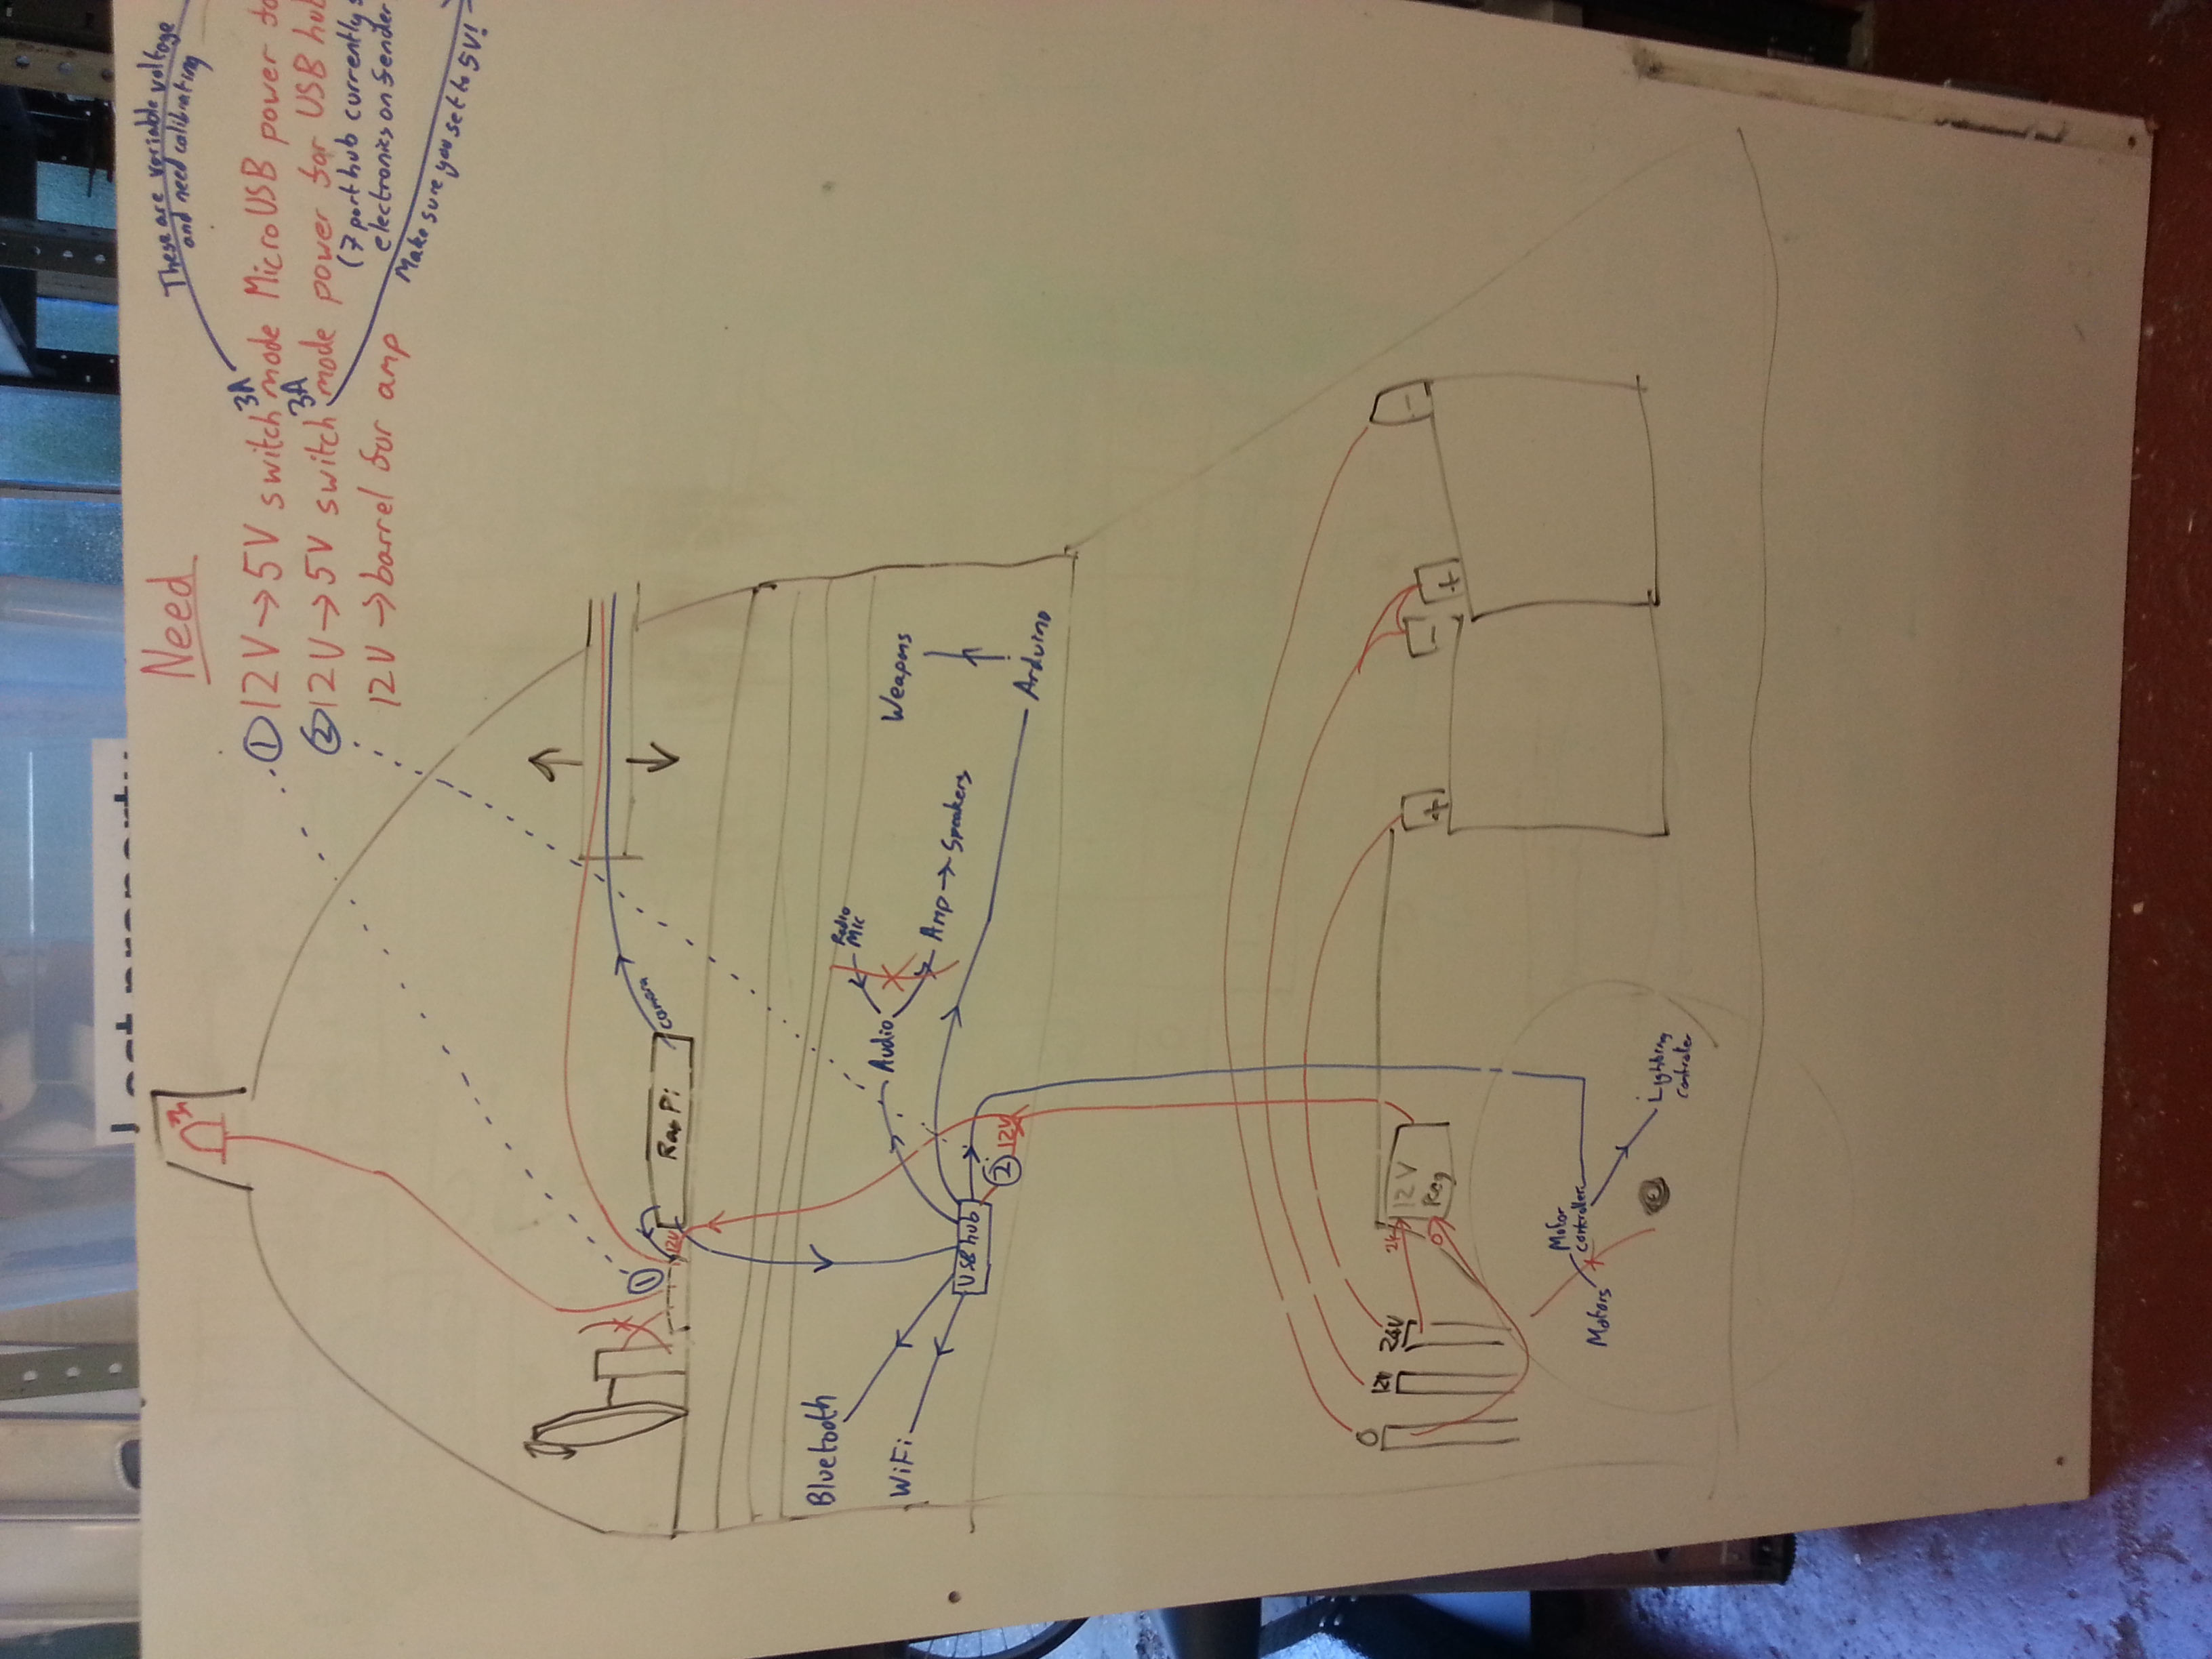 Lost property
Need
These are variable voltage
and need calibrating
3A
① 12V → 5V switch mode MicroUSB power to
3A
② 12V → 5V switch mode power for USB hub
(7 port hub currently
electronics on fender
12V → barrel for amp
Make sure you set to 5V!
①
12V
Ras Pi
camera
Bluetooth
WiFi
Radio
Mic
Audio
Amp → Speakers
Weapons
USB hub
② 12V
Arduino
0
12V
24V
24
0
12V
Reg
+
-
+
-
Motor
controller
Motors
Lighting
controller